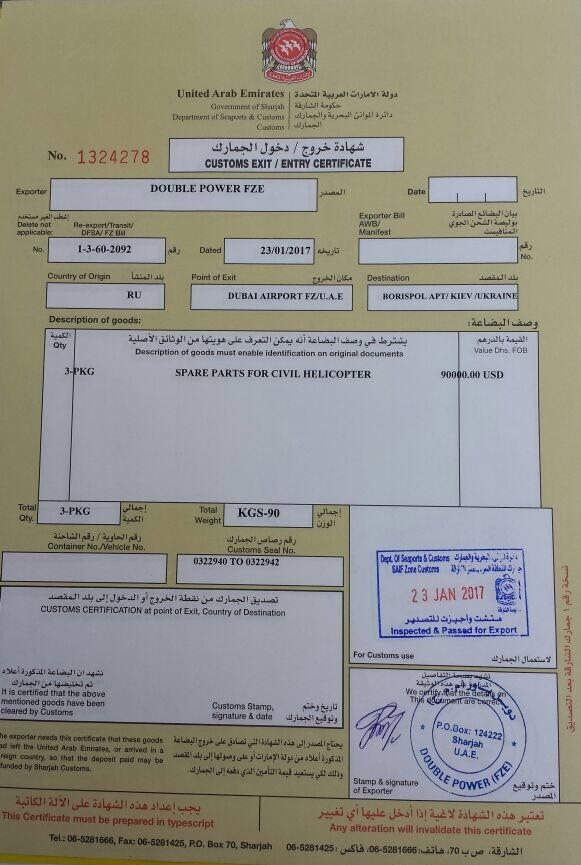 United Arab Emirates دولة الامارات العربية المتحدة
Government of Sharjah حكومة الشارقة
Department of Seaports & Customs دائرة الموانئ البحرية والجمارك
Customs الجمارك
No. 1324278
شهادة خروج / دخول الجمارك
CUSTOMS EXIT / ENTRY CERTIFICATE
Exporter DOUBLE POWER FZE المصدر
Date التاريخ
Delete not applicable:
Re-export/Transit/
DFSA/ FZ Bill
No. 1-3-60-2092 رقم
Dated 23/01/2017 تاريخه
Exporter Bill
AWB/
Manifest
بيان البضائع الصادرة
بوليصة الشحن الجوي
المنافيست
رقم
No.
Country of Origin بلد المنشأ
RU
Point of Exit مكان الخروج
DUBAI AIRPORT FZ/U.A.E
Destination بلد المقصد
BORISPOL APT/ KIEV /UKRAINE
Description of goods: وصف البضاعة:
الكمية
Qty
يشترط في وصف البضاعة أنه يمكن التعرف على هويتها من الوثائق الأصلية
Description of goods must enable identification on original documents
القيمة بالدرهم
Value Dhs. FOB
3-PKG SPARE PARTS FOR CIVIL HELICOPTER 90000.00 USD
Total Qty. 3-PKG إجمالي الكمية
Total Weight KGS-90 إجمالي الوزن
رقم الحاوية / رقم الشاحنة
Container No./Vehicle No.
رقم رصاص الجمارك
Customs Seal No.
0322940 TO 0322942
تصديق الجمارك من نقطة الخروج أو الدخول إلى بلد المقصد
CUSTOMS CERTIFICATION at point of Exit, Country of Destination
نشهد ان البضاعة المذكورة أعلاه
تم تخليصها من الجمارك
It is certified that the above
mentioned goods have been
cleared by Customs
Customs Stamp,
signature & date
تاريخ وختم
وتوقيع الجمارك
Dept. Of Seaports & Customs
SAIF Zone Customs
23 JAN 2017
فتشت وأجيزت للتصدير
Inspected & Passed for Export
For Customs use لاستعمال الجمارك
نشهد بصحة التفاصيل
We certify that the details on
This document are correct
P.O.Box: 124222
Sharjah
U.A.E.
DOUBLE POWER (FZE)
Stamp & signature
of Exporter
ختم وتوقيع
المصدر
he exporter needs this certificate that these goods
ad left the United Arab Emirates, or arrived in a
reign country, so that the deposit paid may be
funded by Sharjah Customs.
يحتاج المصدر إلى هذه الشهادة التي تصادق على خروج البضاعة
المذكورة أعلاه من دولة الإمارات أو على وصولها إلى بلد المقصد
وذلك لكي يستعيد قيمة التأمين الذي دفعه إلى الجمارك.
نسخة رقم ١ جمارك الشارقة بعد التصديق
يجب إعداد هذه الشهادة على الآلة الكاتبة
This Certificate must be prepared in typescript
تعتبر هذه الشهادة لاغية إذا أدخل عليها أي تغيير
Any alteration will invalidate this certificate
Tel.: 06-5281666, Fax: 06-5281425, P.O. Box 70, Sharjah الشارقة، ص ب 70، هاتف: 5281666-06، فاكس: 5281425-06